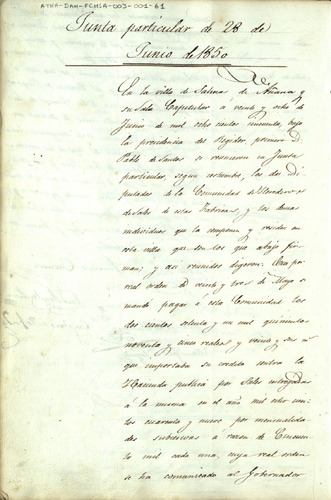 ATHA-DAH-FCHSA-003-001-61
Junta particular de 28 de
Junio de 1850
En la villa de Salinas de Añana y
su Sala Capitular a veinte y ocho de
Junio de mil ocho cientos cincuenta, bajo
la presidencia del Regidor primero D.
Pablo de Santos se reunieron en Junta
particular, segun costumbre, los dos Di-
putados de la Comunidad de Herederos
de Sales de estas Fabricas, y los demas
individuos que la componen y residen en
esta villa que son los que abajo fir-
man; y asi reunidos digeron: Que por
real orden de veinte y tres de Mayo se
mandó pagar á esta Comunidad los
dos cientos setenta y un mil quinientos
noventa y cinco reales y veinte y seis m
que importaba su credito contra la
Hacienda publica por Sales entregadas
á la misma en el año mil ocho cien-
tos cuarenta y nueve por mensualida-
des subcesivas a razon de Cincuenta
mil cada una, cuya real orden
se ha comunicado al Gobernador